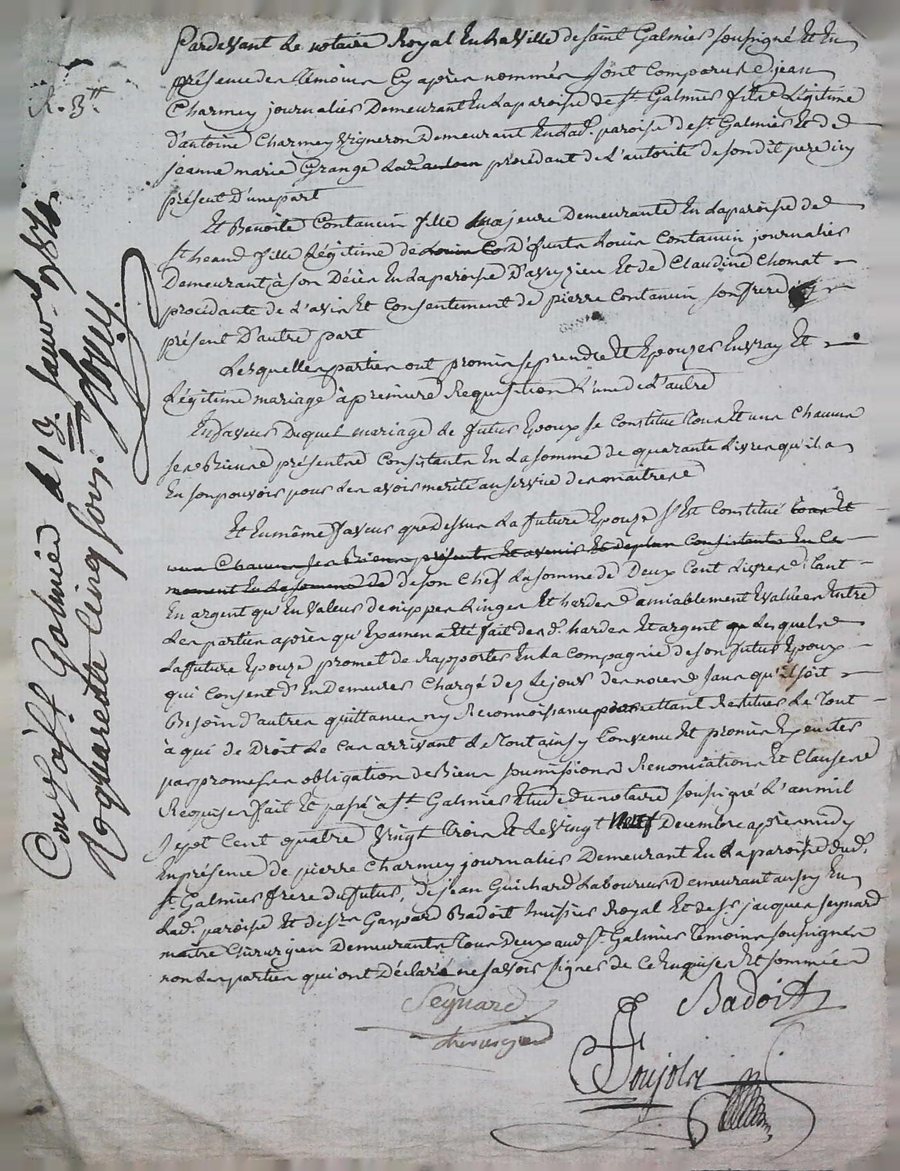 Pardevant le notaire Royal En la Ville de saint Galmier soussigné Et En
présence des témoins Cy après nommés sont Comparus jean
Charmey journalier Demeurant En la paroisse de St. Galmier fils Légitime
d'antoine Charmey Vigneron Demeurant En lad. paroisse de St. Galmier Et de
jeanne marie Grange procédant de L'autorité de sondit pere icy
présent D'une part
Et Benoite Contamin fille Majeure Demeurante En la paroisse de
St. heand fille Légitime de défunt Louis Contamin journalier
Demeurant à son Décès En la paroisse D'aveyzieu Et de Claudine Chomat
procédante de L'avis Et Consentement de pierre Contamin son frere icy
présent D'autre part
Lesquelles parties ont promis se prendre Et Epouzer En vray Et
Légitime mariage à premiere Requisition L'une de L'autre
En faveur Duquel mariage le futur Epoux se Constitue tous Et uns Chacuns
ses Biens présents Consistants En la somme de quarante Livres qu'il a
En son pouvoir pour les avoir mérité au service des maitres
Et En même faveur que dessus La future Epouze s'Est Constitué tous Et
uns Chacuns ses Biens présents Et avenir Et de plus Consistants En Ce
moment En la somme de de son Chef La somme de Deux Cent Livres tant
En argent qu'En valeur de nippes Linges Et hardes amiablement Evaluées Entre
Les parties après qu'Examen a Eté fait desd. hardes Et argent Lesquels
La future Epouze promet de Rapporter En La Compagnie de son futur Epoux
qui Consent D'En demeurer Chargé dez Le jour des noces sans qu'il soit
Besoin d'autres quittances ny Reconnoissance promettant Restituer Le Tout
à qui de Droit Le Cas arrivant Le Tout ainsy Convenu Et promis Executer
par promesses obligation de Biens soumissions Renonciations Et Clauses
Requises fait Et passé à St. Galmier Etude du notaire soussigné L'an mil
sept Cent quatre Vingt Trois Et Le Vingt Neuf Decembre après midy
En présence de pierre Charmey journalier Demeurant En La paroisse dud.
St. Galmier frere du futur, de jean Guichard Laboureur Demeurant aussy En
Lad. paroisse Et de sr. Gaspard Badoit huissier Royal Et de sr. jacques Seynard
maitre Chirurgien Demeurants Tous Deux aud. St. Galmier Temoins soussignés
non Les parties qui ont Déclaré ne savoir signer de Ce Enquises Et sommées
Seynard
chirurgien
Badoit
Poujolz
R. 3tt
Con.le à St Galmier le 13 janv. 1784
R. quarente cinq sous.